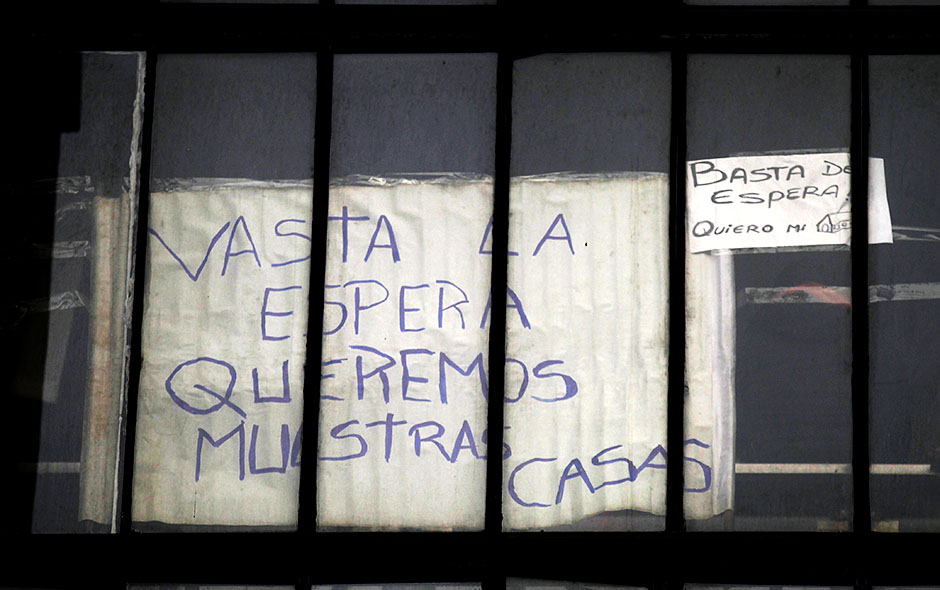 VASTA LA
ESPERA
QUEREMOS
MUESTRAS
CASAS
BASTA DE
ESPERA!
QUIERO MI